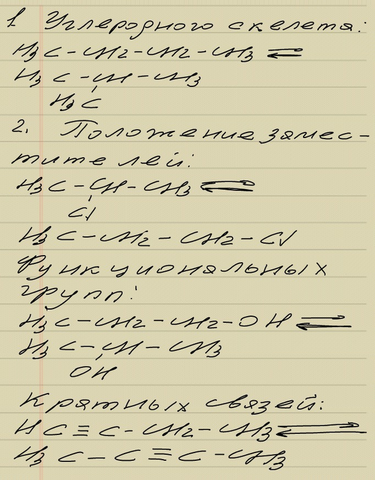 1 Углеродного скелета:
H₃C-CH₂-CH₂-CH₃ ⇌
H₃C-CH-CH₃
H₃C
2. Положение замес-
тителей:
H₃C-CH-CH₃ ⇌
Cl
H₃C-CH₂-CH₂-Cl
Функциональных
групп:
H₃C-CH₂-CH₂-OH ⇌
H₃C-CH-CH₃
OH
Кратных связей:
HC≡C-CH₂-CH₃ ⇌
H₃C-C≡C-CH₃